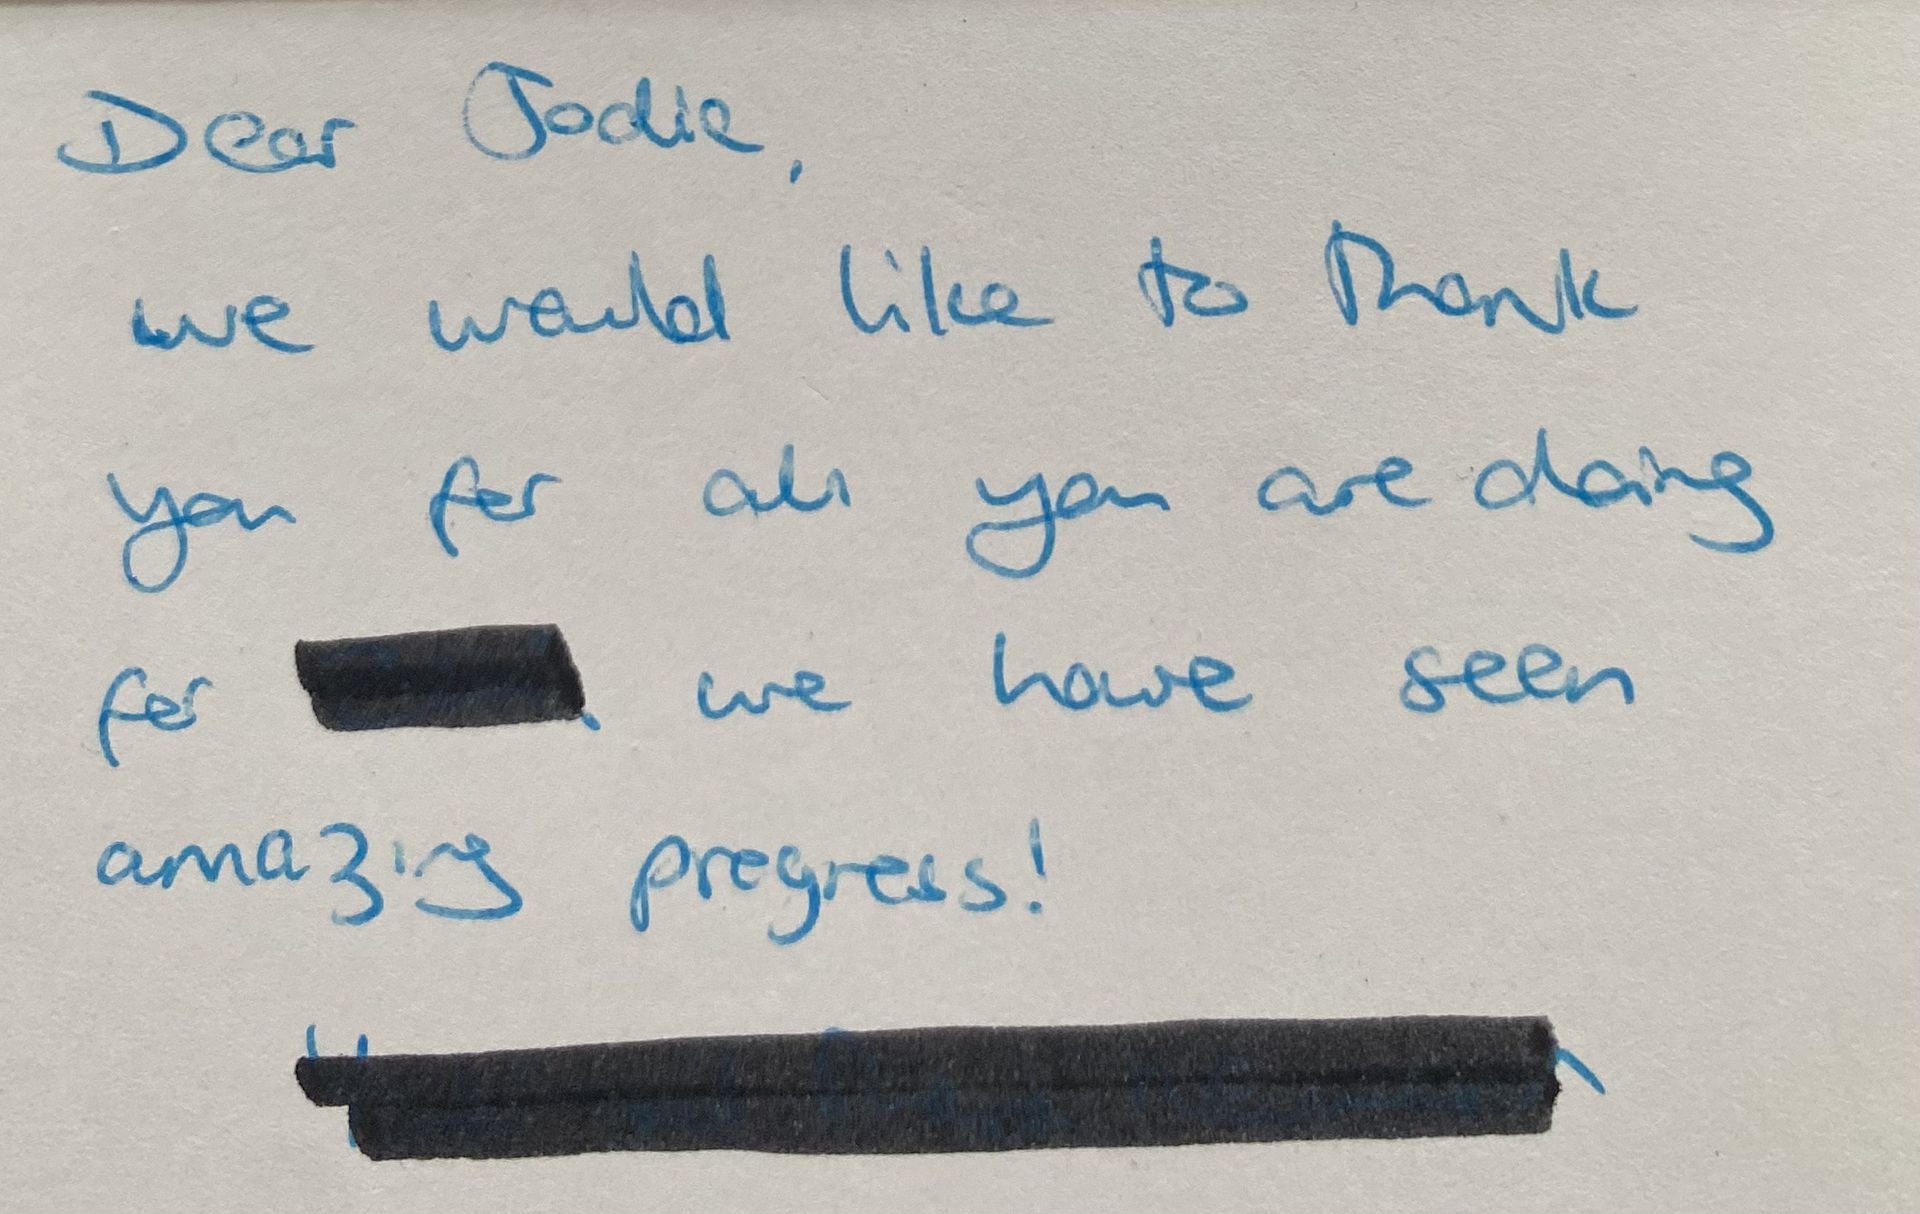 Dear Jodie,
we would like to thank
you for all you are doing
for . we have seen
amazing progress!